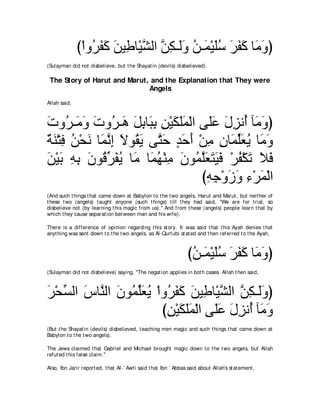 (وَمَا كَفَرَ سُلَيْمَـنُ وَلَـكِنَّ الشَّيْاطِينَ كَفَرُواْ)
(Sulayman did not disbelieve, but the Shayatin (devils) disbelieved).
The Story of Harut and Marut, and the Explanation that They were
Angels
Allah said,
وَمَآ أُنزِلَ عَلَى الْمَلَكَيْنِ بِبَابِلَ هَـرُوتَ وَمَـرُوتَ
وَمَا يُعَلِّمَانِ مِنْ أَحَدٍ حَتَّى يَقُولاَ إِنَّمَا نَحْنُ فِتْنَةٌ
فَلاَ تَكْفُرْ فَيَتَعَلَّمُونَ مِنْهُمَا مَا يُفَرِّقُونَ بِهِ بَيْنَ
الْمَرْءِ وَزَوْجِهِ)
(And such things that came down at Babylon to the two angels, Harut and Marut, but neither of
these two (angels) taught anyone (such things) till they had said, "We are for trial, so
disbelieve not (by learning this magic from us).'' And from these (angels) people learn that by
which they cause separation between man and his wife).
There is a difference of opinion regarding this story. It was said that this Ayah denies that
anything was sent down to the two angels, as Al-Qurtubi stated and then referred to the Ayah,
(وَمَا كَفَرَ سُلَيْمَـنُ)
(Sulayman did not disbelieve) saying, "The negation applies in both cases. Allah then said,
(وَلَـكِنَّ الشَّيْاطِينَ كَفَرُواْ يُعَلِّمُونَ النَّاسَ السِّحْرَ
وَمَآ أُنزِلَ عَلَى الْمَلَكَيْنِ)
(But the Shayatin (devils) disbelieved, teaching men magic and such things that came down at
Babylon to the two angels).
The Jews claimed that Gabriel and Michael brought magic down to the two angels, but Allah
refuted this false claim.''
Also, Ibn Jarir reported, that Al-`Awfi said that Ibn `Abbas said about Allah's statement,